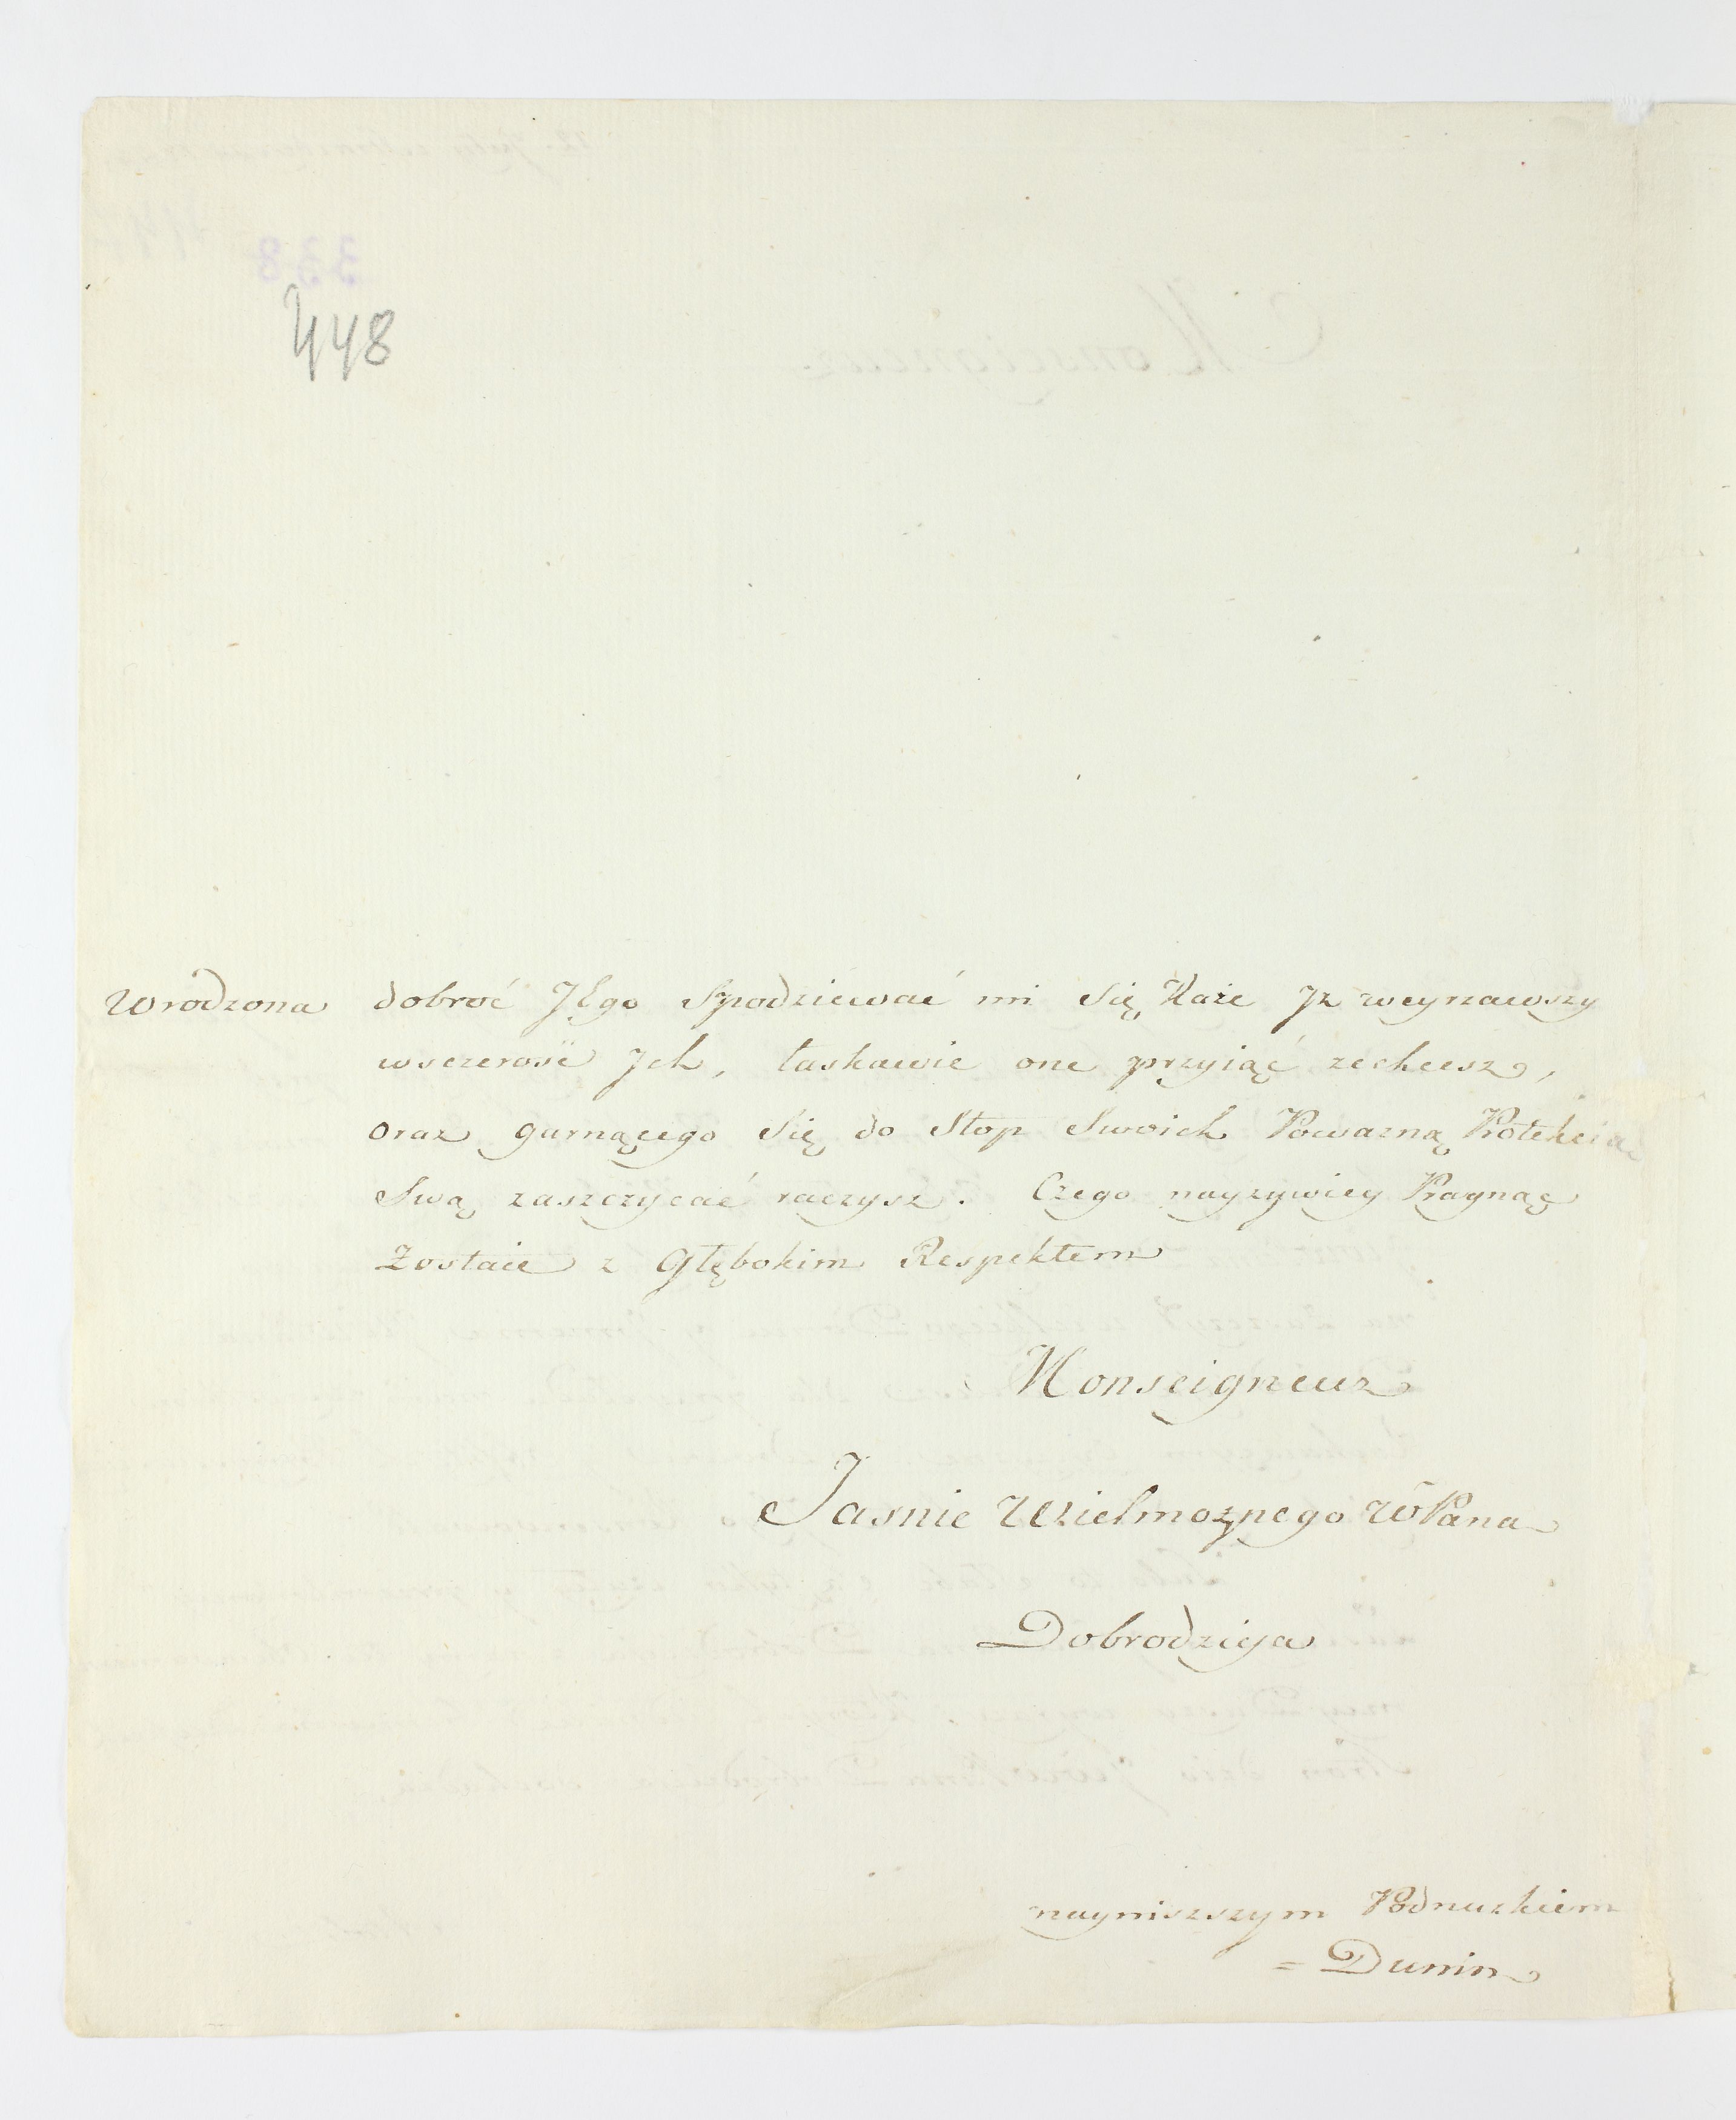 448
Wrodzona dobroć JEgo Spodziewać mi Się Każe Jż weyrzawszy
w szczerość Jch, łaskawie one przyiąć zechcesz,
oraz garnącego Się do Stop Swoich Poważną Protekcią
Swą zaszczycać raczysz. Czego nayżywiey Pragnąc
Zostaie z Głębokim Respektem
Monseigneur
Jasnie Wielmożnego WPana
Dobrodzieja
nayniższym Podnużkiem
= Dunin